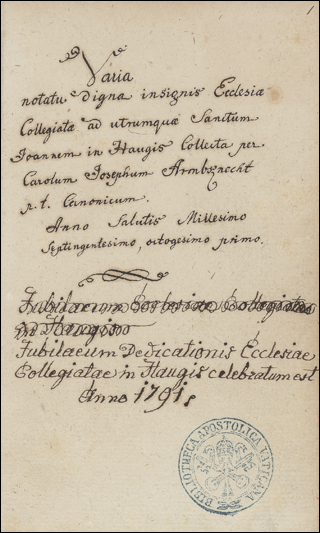 1
Varia
notatu digna insignis Ecclesiæ
Collegiatæ ad utrumquæ Sanctum
Joannem in Haugis Collecta per
Carolum Josephum Armbknecht
p.t. Canonicum.
Anno Salutis Millesimo
Septingentesimo, octogesimo primo.
Jubilaeum Ecclesiae Collegiatae
in Haugis
Jubilaeum Dedicationis Ecclesiae
Collegiatae in Haugis celebratum est
Anno 1791.
BIBLIOTHECA APOSTOLICA VATICANA